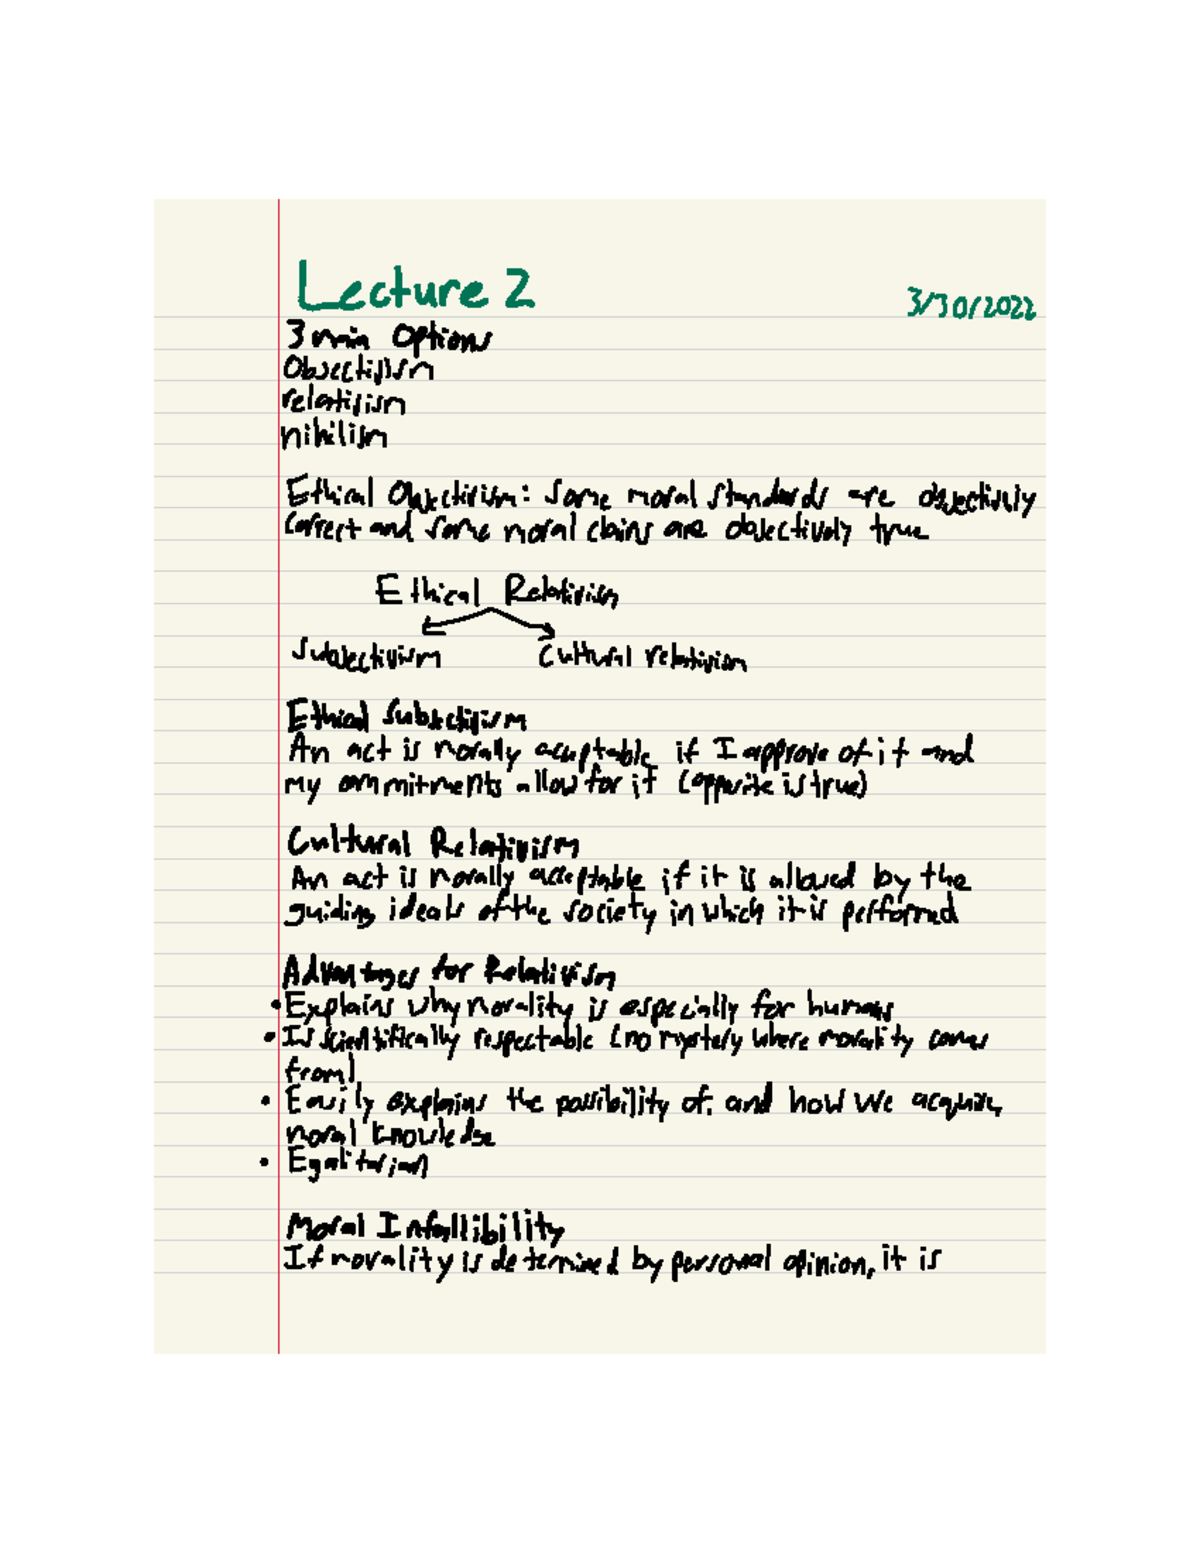 Lecture 2
3/30/2022
3 main Options
Objectivism
relativism
nihilism
Ethical Objectivism: some moral standards are objectively
correct and some moral claims are objectively true
Ethical Relativism
Subjectivism Cultural relativism
Ethical Subjectivism
An act is morally acceptable if I approve of it and
my commitments allow for it (opposite is true)
Cultural Relativism
An act is morally acceptable if it is allowed by the
guiding ideals of the society in which it is performed
Advantages for Relativism
• Explains why morality is especially for humans
• Is scientifically respectable (no mystery where morality comes
from)
• Easily explains the possibility of, and how we acquire,
moral knowledge
• Egalitarian
Moral Infallibility
If morality is determined by personal opinion, it is